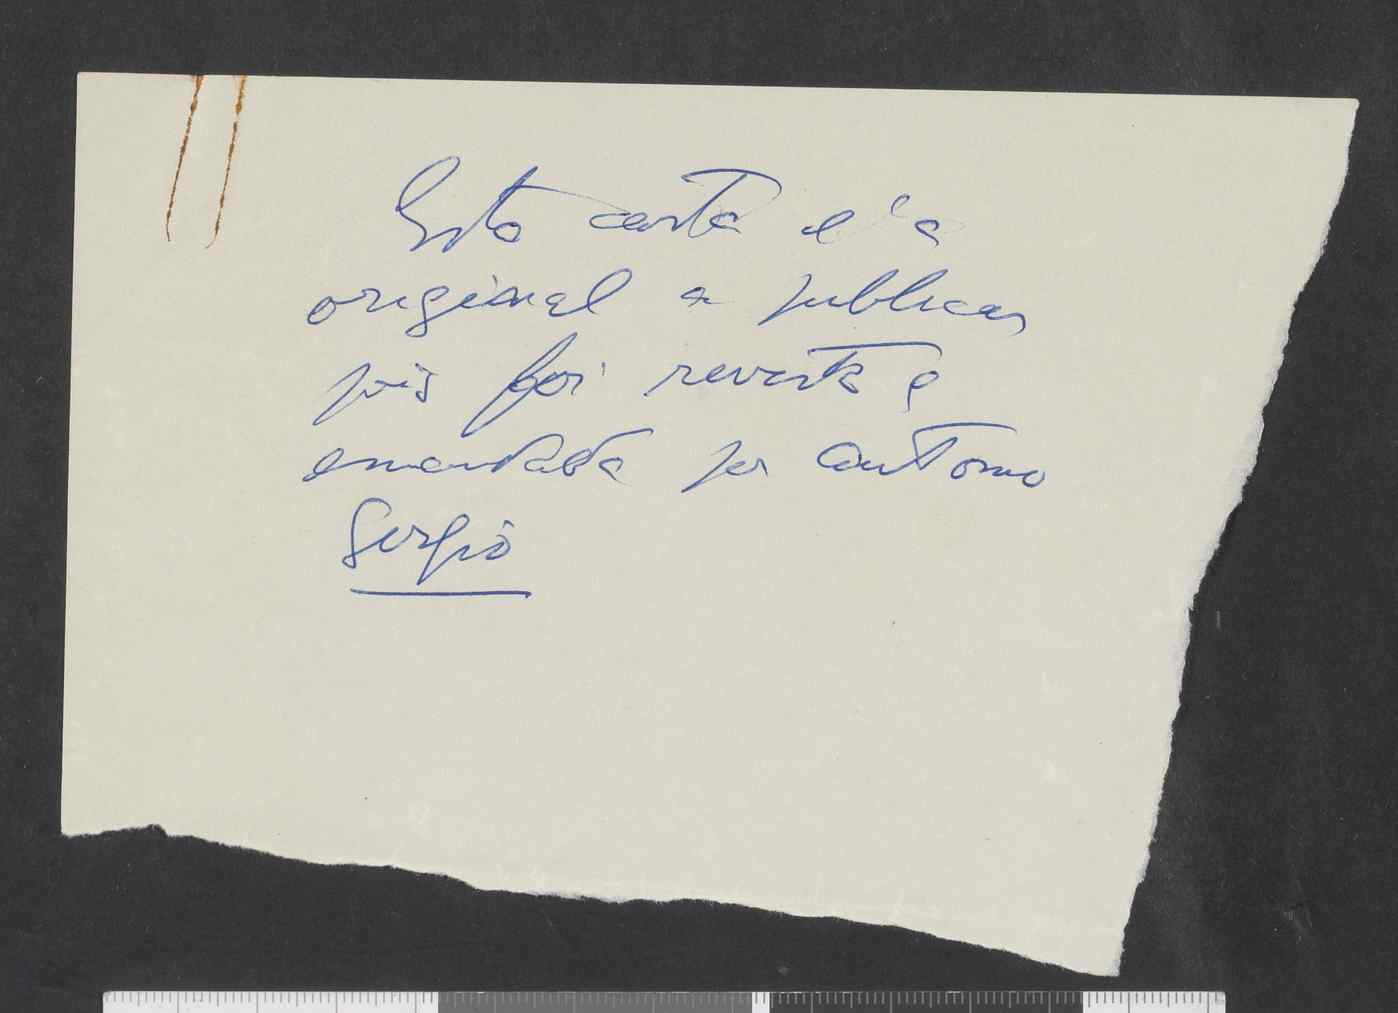 Esta carta é a
original a publicar
pois foi revista e
emendada por Antonio
Sergio